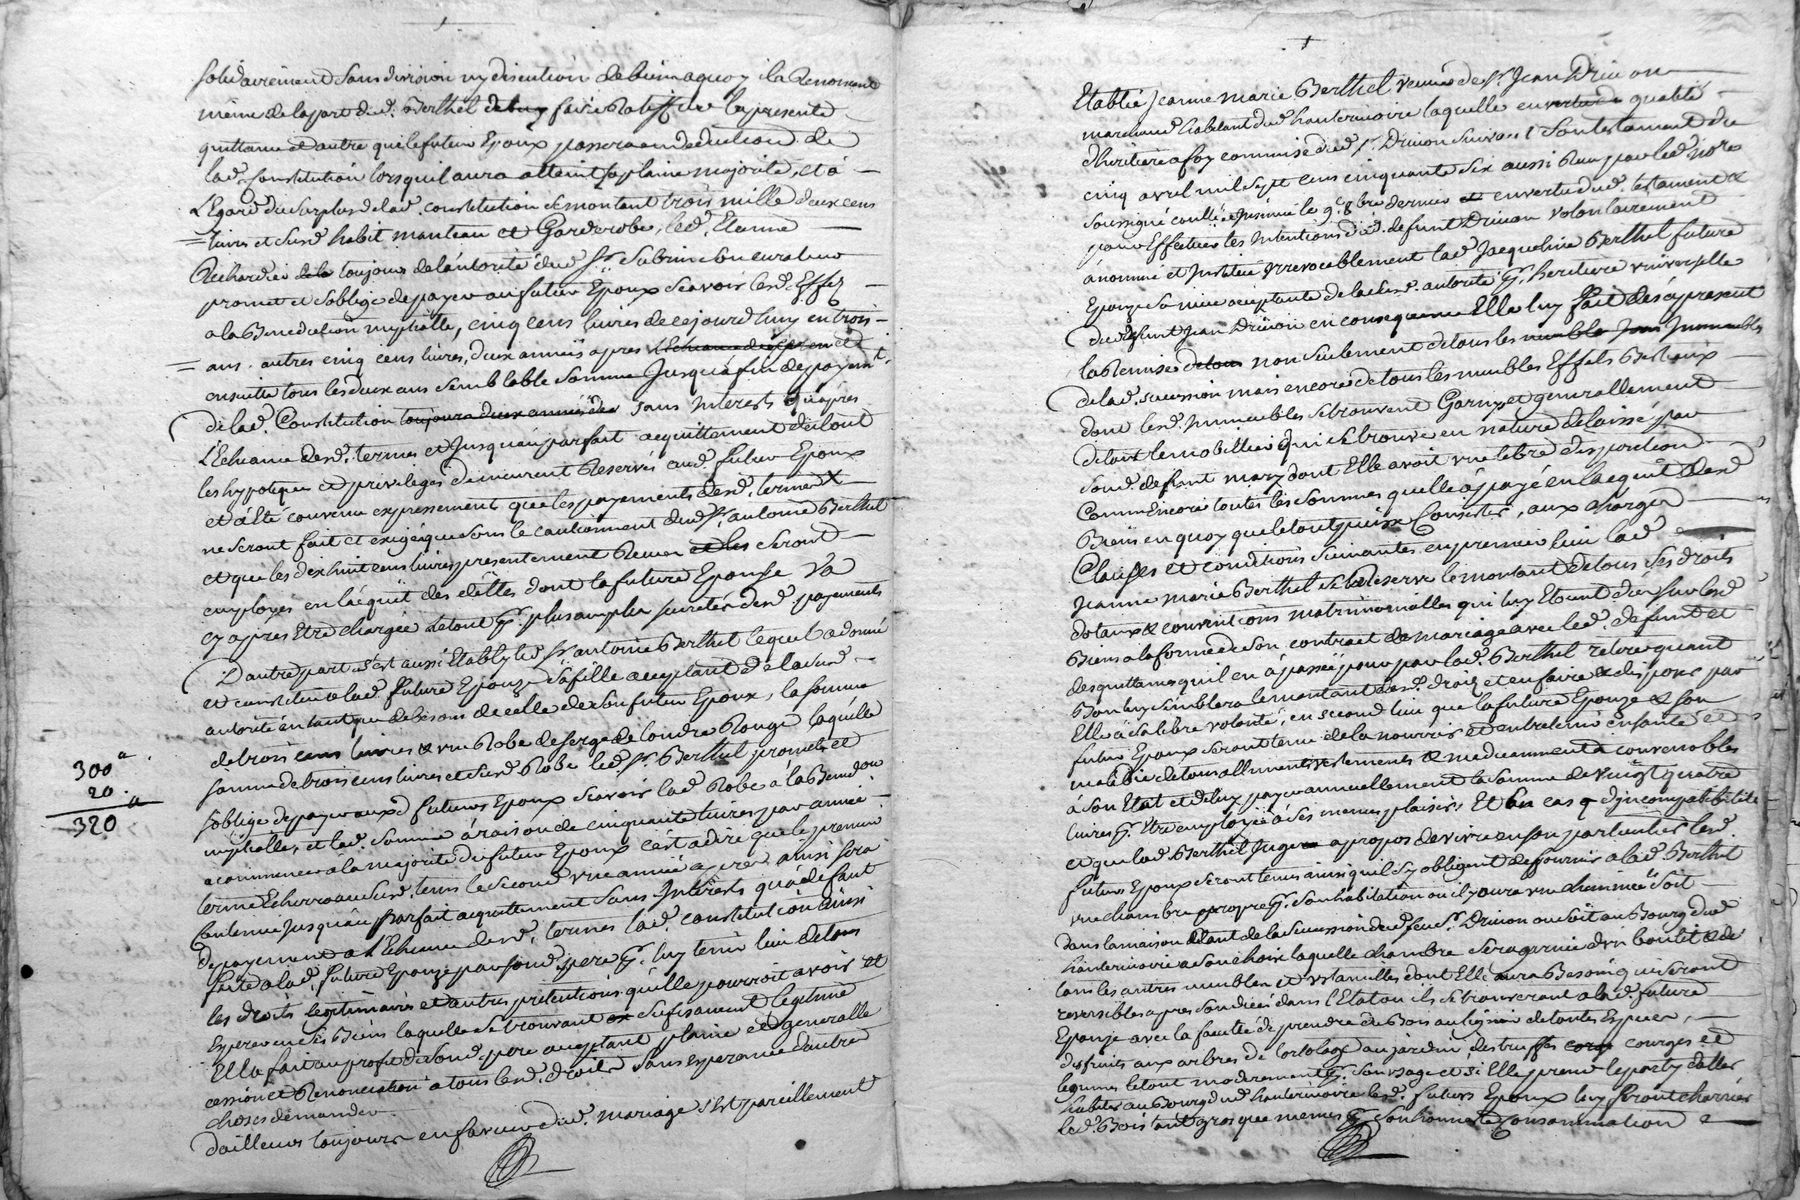 solidairement sans division ny discution de biens a quoy ila Renoncent
même de la part dud. Berthel de luy faire Ratiffier la presente
quittance et autre que le futeur Epoux passera en deduction de
lad. Constitution lorsquil aura atteint sa plaine majorité, et à
L'Egard du Surplus de lad. constitution Se montant trois mille deux cens
livres et Susd. habit manteau et Garderobe, led. Etienne
Richardier de la toujours de l'autorité dud. Sr. Sabrin Son curateur
promet et s'oblige de payer au futeur Epoux Scavoir lesd. Effets
a la Benediction nuptialle, cinq cens livres de ce jourd'huy en trois
ans, autres cinq cens livres, deux années apres et
ensuitte tous les deux ans Semblable Somme Jusqu'a fin de payemt.
de lad. Constitution toujours deux années sans Interests qu'apres
L'Echeance desd. termes et Jusqu'au parfait acquittement de tout
les hypoteques et privileges demeurent Reservés aud. futeur Epoux
et a été convenu expressement que les payements desd. termes
ne Seront fait et exigé que Sous le cautionnement dud. Sr. antoine Berthel
et que les dix huit cens livres presentement Receu et les Seront
employés en l'acquit des dettes dont la future Epouse Va
cy apres Etre chargée le tout pr. plus ample Sureté desd. payements
D'autre part s'est aussi Etably led. Sr. antoine Berthel lequel a donné
et constitué a lad. future Epouze Sa fille acceptant de la Susd.
autorité en tant que de besoin de celle de Son futeur Epoux, la Somme
de trois cens livres & une Robe de Serge de londre Rouge laquelle
Somme de trois cens livres et Susd. Robe led. Sr. Berthel promet et
s'oblige de payer auxd. futeurs Epoux Scavoir lad. Robe a la Benedon.
nuptialle, et lad. Somme a raison de cinquante livres par année
a commencer a la majorité du futeur Epoux c'est a dire que le premier
terme Echerra aud. tems le Second une année apres ainsi Sera
Continué Jusqu'au parfait acquittement Sans Interests qu'a deffaut
de payement a l'Echeance desd. termes lad. constitution ainsi
faite a lad. future Epouze par Sond. pere pr. luy tenir lieu de tous
les droits legitimaires et autres pretentions qu'elle pourroit avoir et
Esperer en Ses Biens laquelle Se trouvant Sufisament legitimé
Elle fait au profit de Sond. pere acceptant plaine et generalle
cession et Renonciation a tous lesd. droits Sans Esperance d'autre
choses demander
d'ailleurs toujours en faveur dud. mariage S'Est pareillement
300lt
20lt
320
Etablie Jeanne marie Berthel veuve de Sr. Jean Drivon
marchand habitant dud. hauterivoire laquelle en vertu de qualité
d'heritiere a foy commise dud. Sr. Drivon Suivant Son testament du
cinq avril mil Sept cens cinquante Six aussi Receu par led. Nore.
Soussigné conllé et Insinué le 9bre. dernier et en vertu dud. testament &
pour Effectuer les Intentions dud. defunt Drivon volontairement
a nommé et Institué Irrevocablement lad. Jacqueline Berthel future
Epouze Sa niece acceptante de la Susd. autorité pr. heritiere universelle
dud. defunt Jean Drivon en consequence Elle luy fait dès apresent
la Remise de tous non Seulement de tous les meubles Immeubles
de lad. Succession mais encore de tous les meubles Effets Bestiaux
dont lesd. Immeubles Se trouvent Garnys et generallement
de tout le mobillier qui Se trouve en nature delaissé par
Sond. defunt mary dont Elle avoit une libre disposition
Comm'Encore toutes les Sommes quelle a payé en l'acquit desd.
Biens en quoy que le tout puisse Consister, aux charges
Clauses et conditions Suivantes en premier lieu lad.
Jeanne marie Berthel Se Reserve le montant de tous Ses droits
dotaux & conventions matrimonialles qui luy Etoient dû Sur lesd.
Biens a la forme de Son contract de mariage avec led. defunt et
des quittances qu'il en a passé pour par lad. Berthel retirer quant
Bon luy Semblera le montant desd. droits et en faire & disposer par
Elle a Sa libre volonté, en Second lieu que la future Epouze & Son
futeur Epoux Seront tenu de la nourrir et entretenir en Santé et
maladie de tous alliments vestements & medicaments convenables
a Son Etat et de luy payer annuellement la Somme de vingt quatre
livres pr. Etre employée a Ses menus plaisirs Et en cas d'Incompatibilité
et que lad. Berthel Juge a propos de vivre en Son particulier lesd.
futeurs Epoux Seront tenus ainsi qu'il S'y obligent de fournir a lad. Berthel
une chambre propre pr. Son habitation ou il y aura une cheminée Soit
dans la maison de la Succession dud. feu Sr. Drivon ou Soit au Bourg dud.
hauterivoire a Son choix laquelle chambre Sera garnie d'un bon lit & de
tous les autres meubles et Ustancilles dont Elle aura Besoin qui Seront
reversibles apres Son décès dans l'Etat ou ils Se trouveront a lad. future
Epouze avec la faculté de prendre du Bois au bûcher de toutes Especes,
des fruits aux arbres de l'ortolage au jardin, des truffes courges et
legumes le tout moderement pr. Son usage et Si Elle prend le party d'aller
habiter au Bourg dud. hauterivoire lesd. futeurs Epoux luy feront charrier
led. Bois tant gros que menus pr. Son honneste Consommation